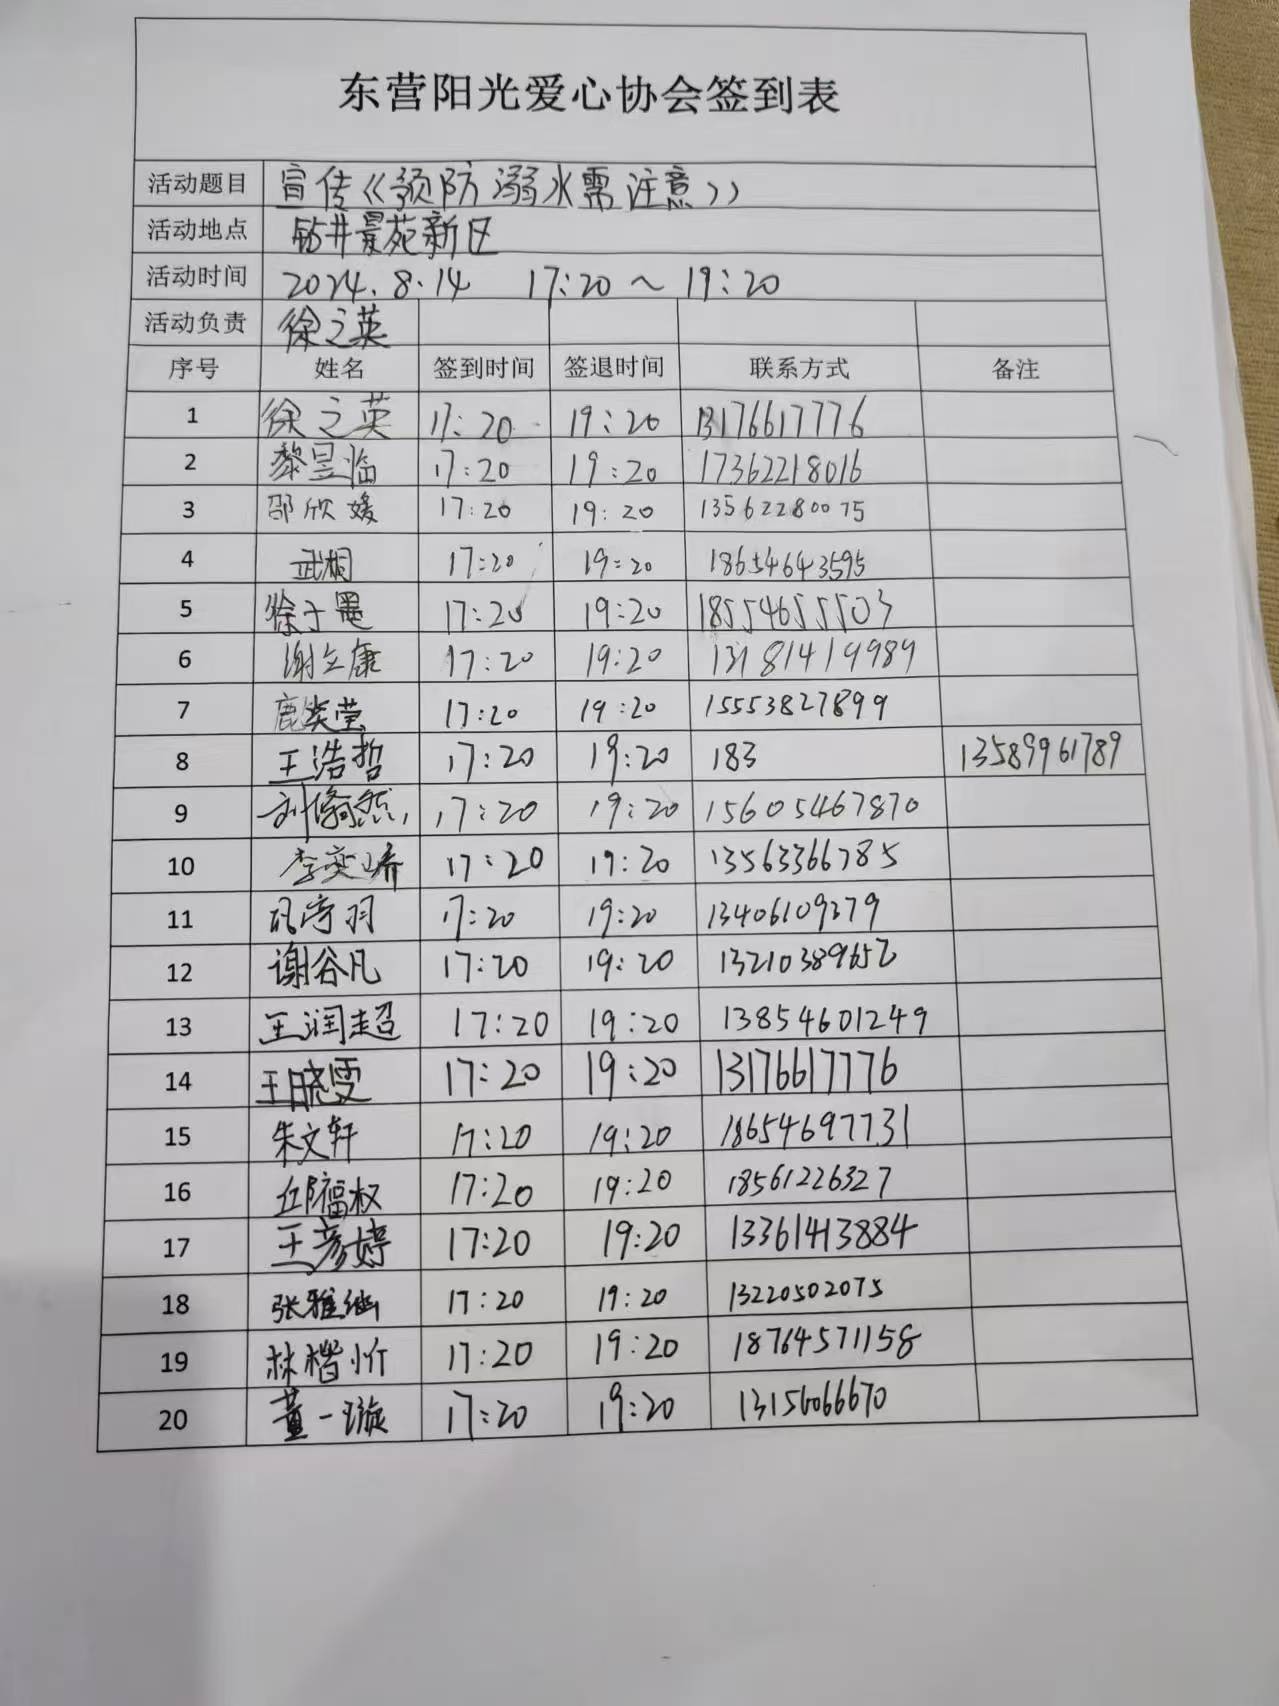 东营阳光爱心协会签到表
活动题目 宣传《预防溺水需注意》
活动地点 钻井景苑新区
活动时间 2024.8.14 17:20~19:20
活动负责 徐之英
序号 姓名 签到时间 签退时间 联系方式 备注
1 徐之英 17:20 19:20 13176617776
2 黎昱临 17:20 19:20 17362218016
3 邵欣媛 17:20 19:20 13562280075
4 武桐 17:20 19:20 18654643595
5 徐子墨 17:20 19:20 18554655503
6 谢立康 17:20 19:20 13181419989
7 17:20 19:20 15553827899
8 王浩哲 17:20 19:20 183 13589961789
9 17:20 19:20 15605467870
10 17:20 19:20 13563366785
11 17:20 19:20 13406109379
12 谢谷凡 17:20 19:20 13210389652
13 王润超 17:20 19:20 13854601249
14 王晓雯 17:20 19:20 13176617776
15 朱文轩 17:20 19:20 18654697731
16 邱福权 17:20 19:20 18561226327
17 王彦婷 17:20 19:20 13361413884
18 17:20 19:20 13220502075
19 林楷忻 17:20 19:20 18764571158
20 董一璇 17:20 19:20 13156066670